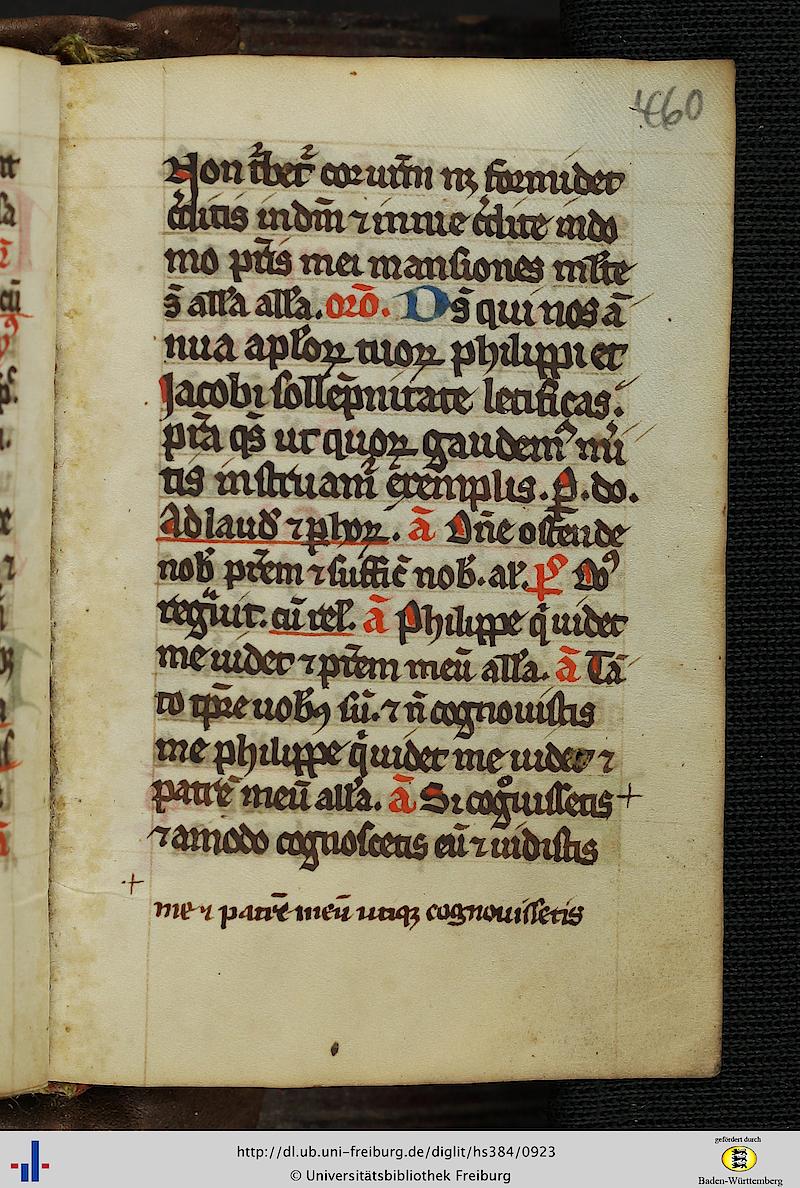 460
Non t̄bet᷑ cor uēm nꝫ formidet
c̄ditis in dm̄ ⁊ in me c̄dite in do
mo pr̄is mei mansiones ml̄te
s̄ all'a all'a. orō. Ds̄ qui nos ā
nua apl'oꝝ tuoꝝ philippi et
Jacobi sollēpnitate letificas.
pr̄a qs̄ ut quoꝝ gaudemꝰ mi
tis instruam᷑ exemplis. P. do.
Ad laud' ⁊ ꝑ hoꝝ. ā Dn̄e ostende
nob' pr̄em ⁊ suffic̄ nob'. al'. p̄s Dn̄s
regͣuit. cū rel'. ā Philippe q' uidet
me uidet ⁊ pr̄em meū all'a. ā Tā
to tp̄re uobꝫ sū. ⁊ n̄ cognouistis
me philippe q' uidet me uidet ⁊
patrē meū all'a. ā Si cogͦuissetis +
⁊ amodo cognoscetis eū ⁊ uidistis
+
me ⁊ patrē meū utiqꝫ cognouissetis
http://dl.ub.uni-freiburg.de/diglit/hs384/0923
© Universitätsbibliothek Freiburg
gefördert durch
Baden-Württemberg